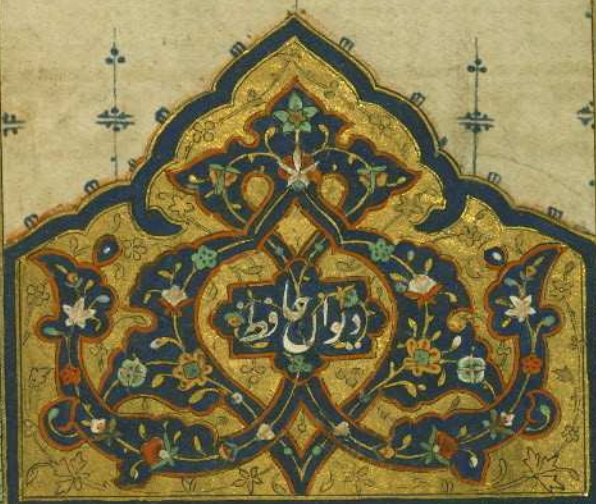 دیوان حافظ